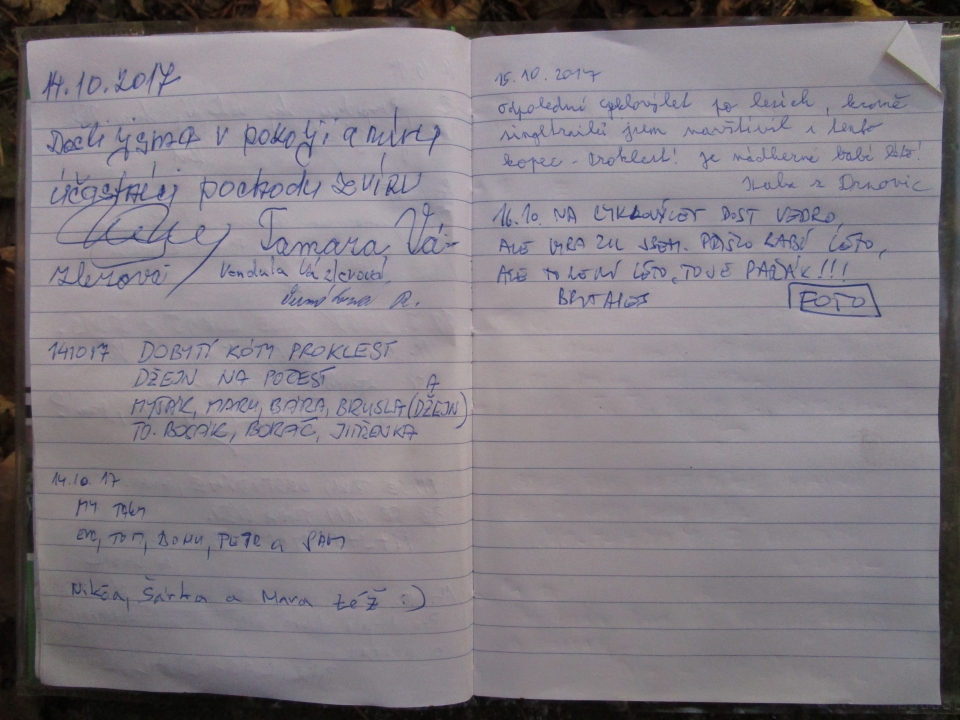 14.10.2017
Došli jsme v pokoji a míru
účastníci pochodu
Tamara Vá-
zlerová
Vendula Vázlerová
R.
141017 DOBYTÍ KÓTY PROKLEST
DŽEJN NA POČEST
A
MYŠÁK, MARU, BÁRA, BRUSLA (DŽEJN)
TO. BOCÁK, BORÁČ, JITŘENKA
14.10.17
MY TAKY
EVČ, TOM, DOMU, PETR a SAM
Nikča, Šárka a Mara též :)
15.10.2017
odpolední cyklovýlet po lesích, kromě
singltrailů jsem navštívil i tento
kopec - Proklest! je nádherné babí léto!
z Drnovic
16.10. NA CYKLOVÝLET DOST VEDRO,
ALE JSEM. PŘIŠLO BABÍ LÉTO,
ALE TO LETNÍ LÉTO, TO JE PAŘÁK!!!
FOTO